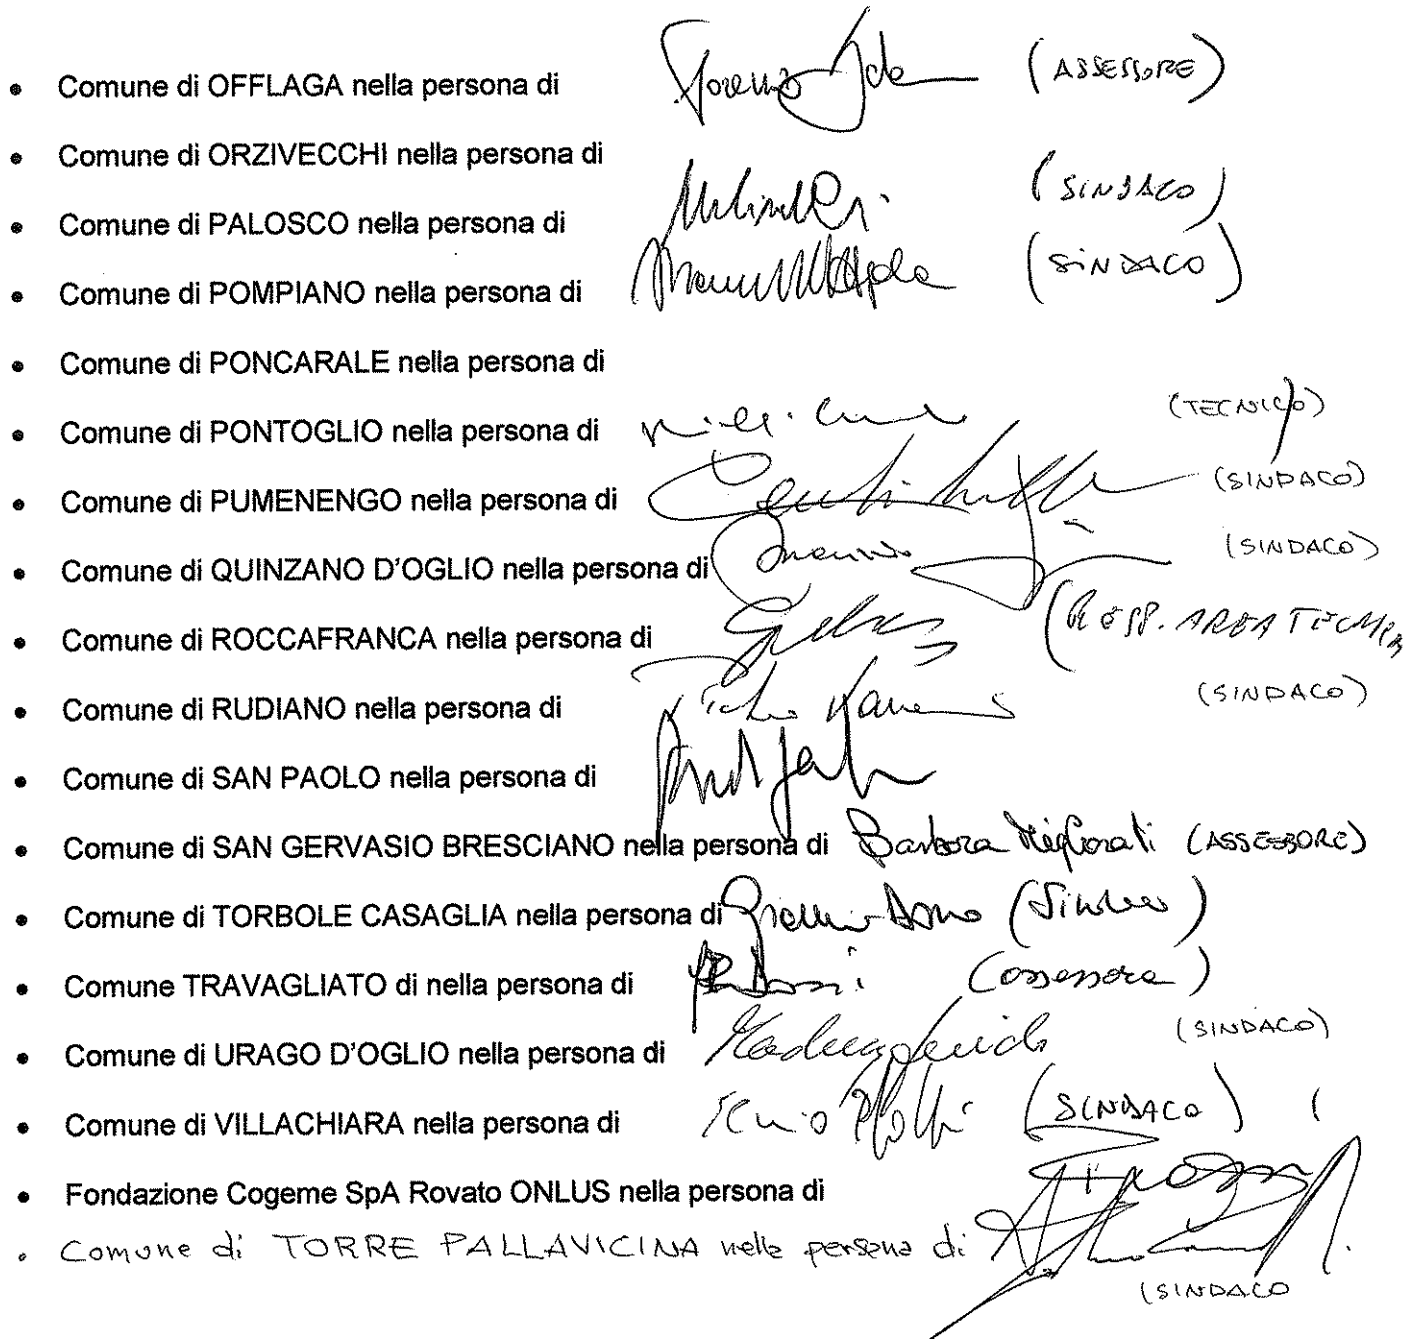 • Comune di OFFLAGA nella persona di (ASSESSORE)
• Comune di ORZIVECCHI nella persona di
(SINDACO)
• Comune di PALOSCO nella persona di
• Comune di POMPIANO nella persona di (SINDACO)
• Comune di PONCARALE nella persona di
• Comune di PONTOGLIO nella persona di (TECNICO)
• Comune di PUMENENGO nella persona di (SINDACO)
• Comune di QUINZANO D'OGLIO nella persona di (SINDACO)
• Comune di ROCCAFRANCA nella persona di (RESP. AREA TECNICA
• Comune di RUDIANO nella persona di (SINDACO)
• Comune di SAN PAOLO nella persona di
• Comune di SAN GERVASIO BRESCIANO nella persona di Barbara Migliorati (ASSESSORE)
• Comune di TORBOLE CASAGLIA nella persona di (Sindaco)
• Comune TRAVAGLIATO di nella persona di (assessore)
• Comune di URAGO D'OGLIO nella persona di (SINDACO)
• Comune di VILLACHIARA nella persona di (SINDACO)
• Fondazione Cogeme SpA Rovato ONLUS nella persona di
• Comune di TORRE PALLAVICINA nella persona di
(SINDACO